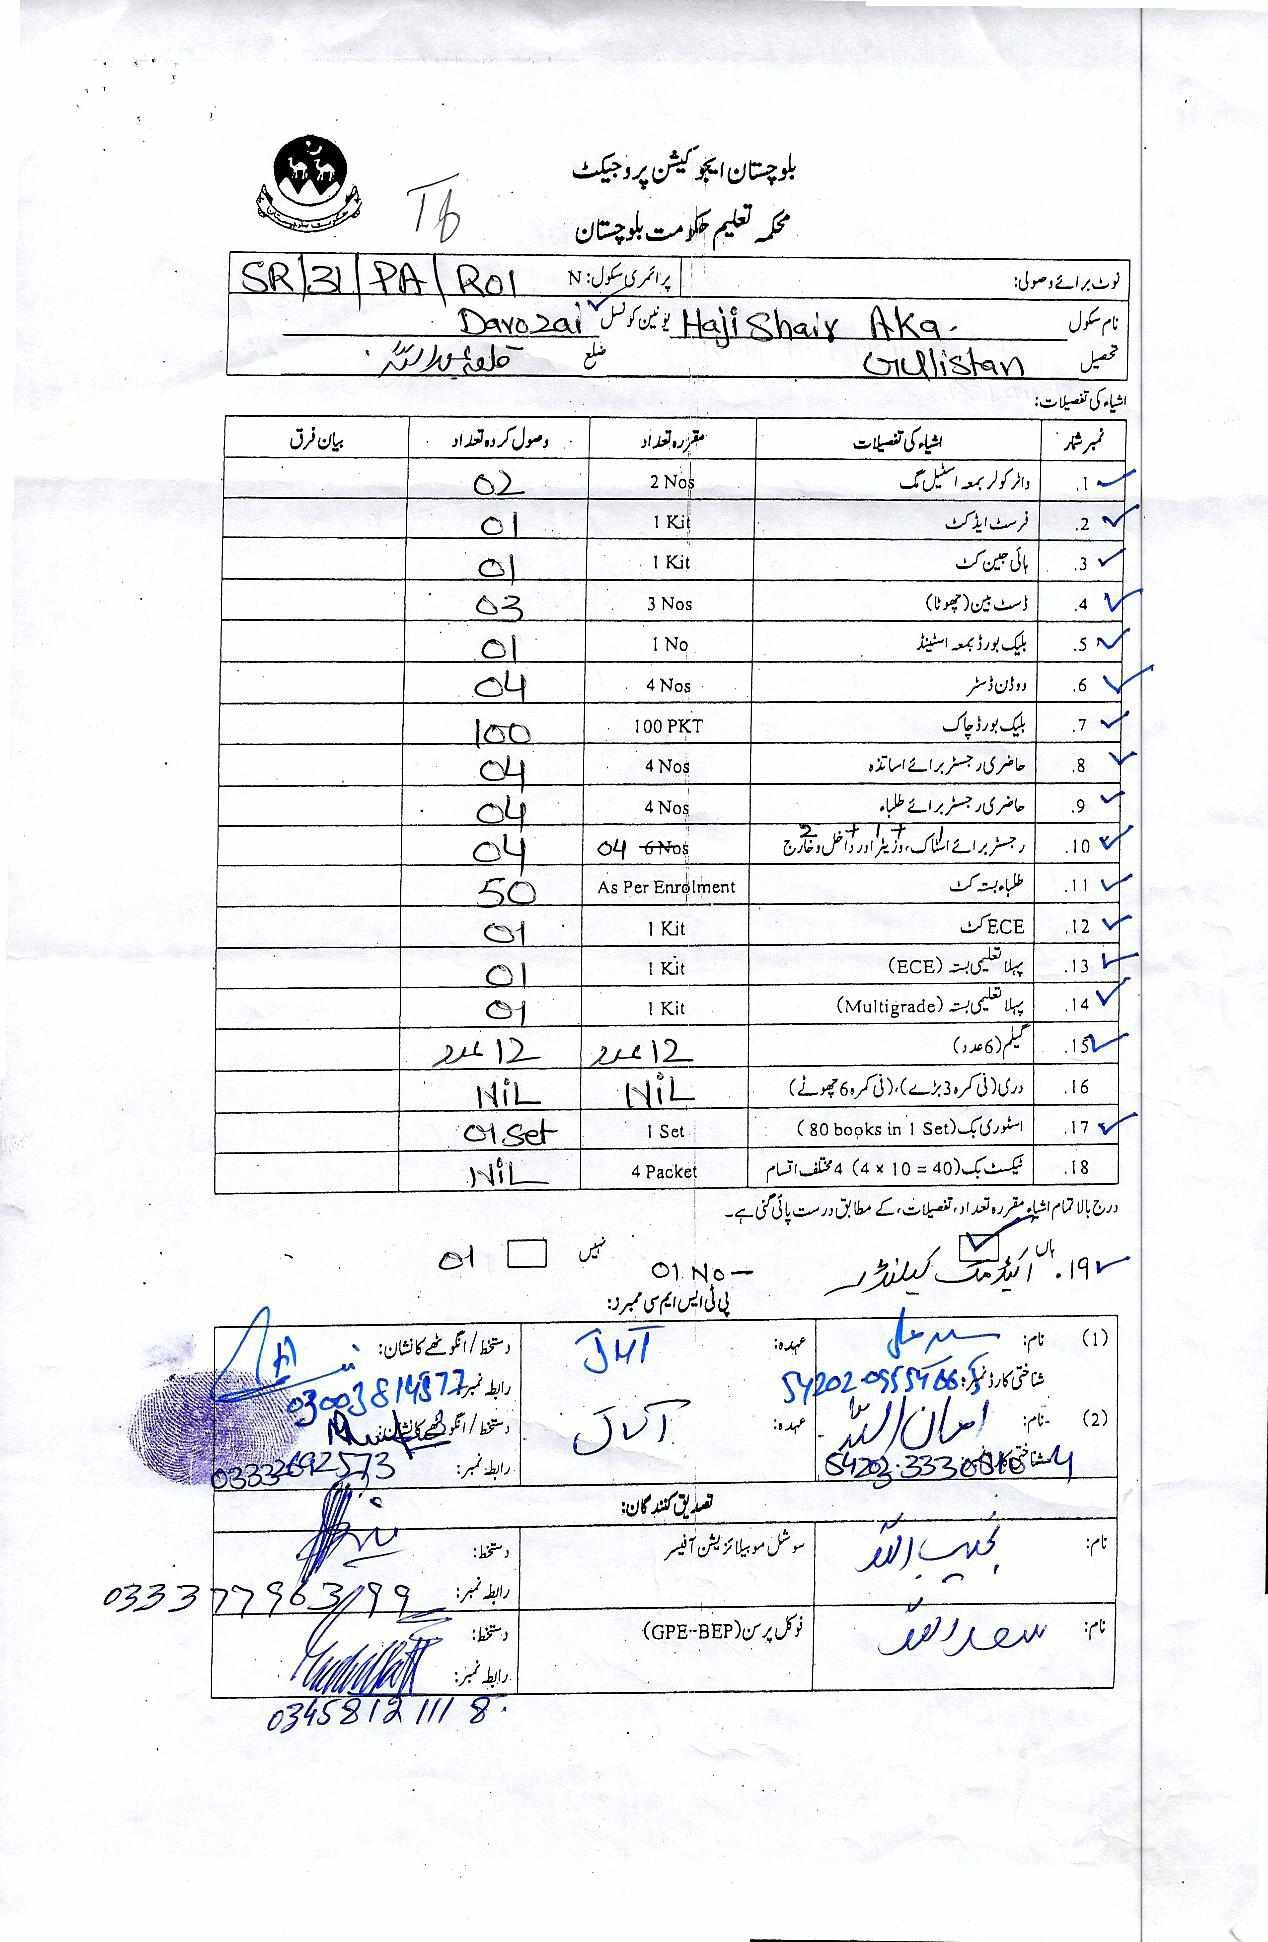 بلوچستان ایجوکیشن پروجیکٹ
محکمہ تعلیم حکومت بلوچستان
نوٹ برائے وصولی: پرائمری سکول: N SR/31/PA/R01
نام سکول Haji Shair Aka. یونین کونسل Darozai
تحصیل Gullistan ضلع قلعہ عبداللہ
اشیاء کی تفصیلات:
نمبر شمار اشیاء کی تفصیلات مقررہ تعداد وصول کردہ تعداد بیان فرق
1. واٹر کولر بمعہ اسٹیل مگ 2 Nos 02
2. فرسٹ ایڈ کٹ 1 Kit 01
3. ہائی جین کٹ 1 Kit 01
4. ڈسٹ بین (چھوٹا) 3 Nos 03
5. بلیک بورڈ بمعہ اسٹینڈ 1 No 01
6. ووڈن ڈسٹر 4 Nos 04
7. بلیک بورڈ چاک 100 PKT 100
8. حاضری رجسٹر برائے اساتذہ 4 Nos 04
9. حاضری رجسٹر برائے طلباء 4 Nos 04
2 + 1 + 1
10. رجسٹر برائے اسٹاک، وزیٹر اور داخل و خارج 04 6 Nos 04
11. طلباء بستہ کٹ As Per Enrolment 50
12. ECE کٹ 1 Kit 01
13. پہلا تعلیمی بستہ (ECE) 1 Kit 01
14. پہلا تعلیمی بستہ (Multigrade) 1 Kit 01
15. گیلم (6 عدد) 12 عدد 12 عدد
16. دری (فی کمرہ 3 بڑے)، (فی کمرہ 6 چھوٹے) NiL NiL
17. اسٹوری بک (80 books in 1 Set) 1 Set 01 Set
18. ٹیکسٹ بک (4 x 10 = 40) 4 مختلف اقسام 4 Packet NiL
درج بالا تمام اشیاء مقررہ تعداد، تفصیلات، کے مطابق درست پائی گئی ہے۔
ہاں نہیں
19. اکیڈمک کیلنڈر 01 No 01
پی ٹی ایس ایم سی ممبرد:
(1) نام: عہدہ: JMT دستخط/انگوٹھے کا نشان:
شناختی کارڈ نمبر: رابطہ نمبر: 03003814877
(2) نام: امان اللہ عہدہ: دستخط/انگوٹھے کا نشان:
شناختی کارڈ نمبر: رابطہ نمبر: 03332692573
تصدیق کنندگان:
نام: نجیب اللہ سوشل موبیلائزیشن آفیسر دستخط:
رابطہ نمبر: 03337796399
نام: سعداللہ فوکل پرسن (GPE-BEP) دستخط:
رابطہ نمبر:
03458121118